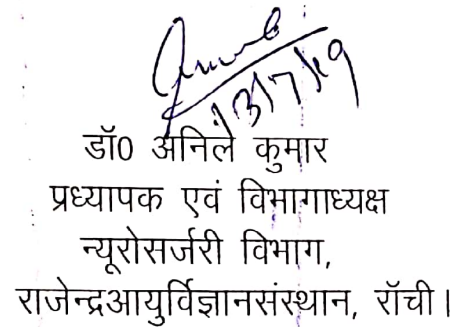 13/7/19
डॉ0 अनिल कुमार
प्रध्यापक एवं विभागाध्यक्ष
न्यूरोसर्जरी विभाग,
राजेन्द्रआयुर्विज्ञानसंस्थान, रॉची।